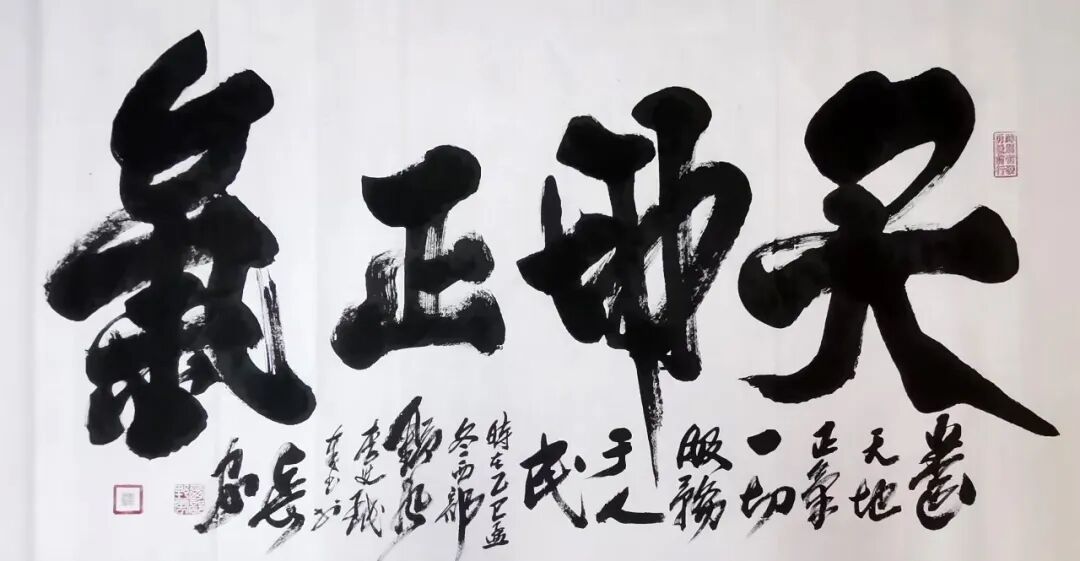 天師正氣
養
天地
正氣
一切
服務
于人
民
時在乙巳孟
冬西部
書於
長
安